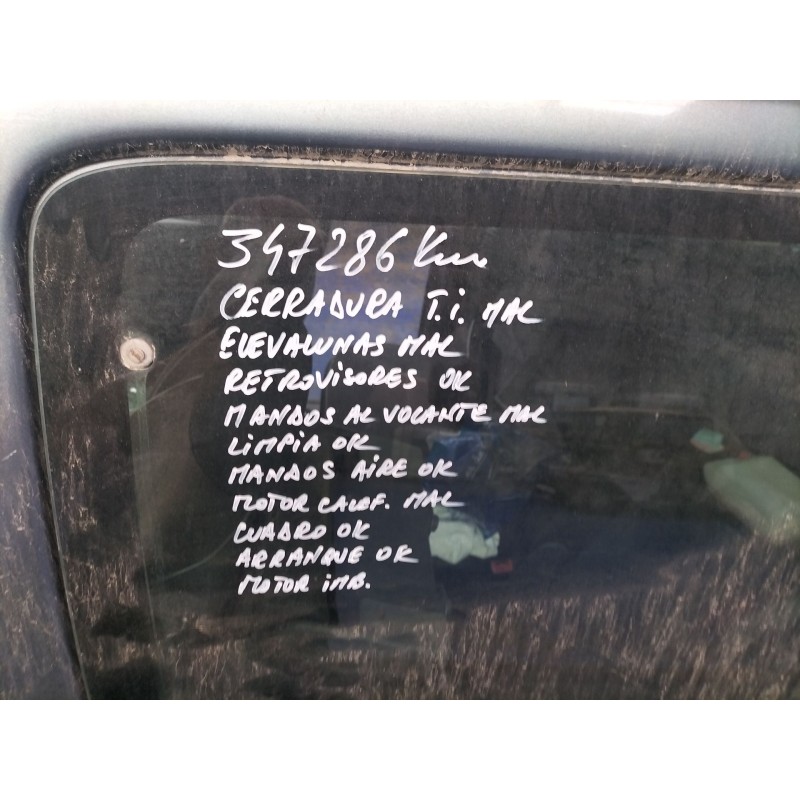 347286 Km
CERRADURA T.i. MAL
ELEVALUNAS MAL
RETROVISORES OK
MANDOS AL VOLANTE MAL
LIMPIA OK
MANDOS AIRE OK
MOTOR CALEF. MAL
CUADRO OK
ARRANQUE OK
MOTOR iMB.